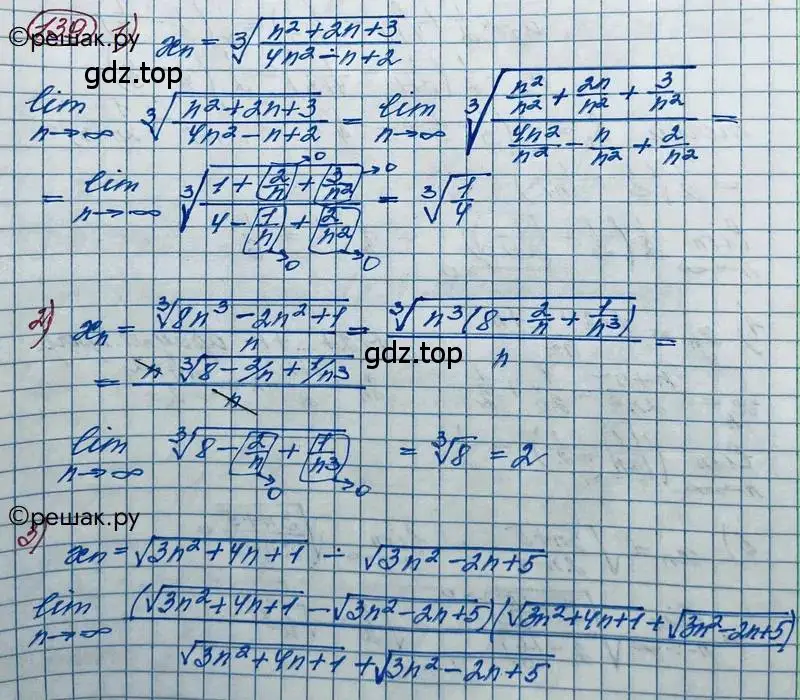 139 1) xₙ = ∛((n²+2n+3)/(4n²−n+2))
©решак.ру
gdz.top
lim n→∞ ∛((n²+2n+3)/(4n²−n+2)) = lim n→∞ ∛((n²/n² + 2n/n² + 3/n²)/(4n²/n² − n/n² + 2/n²)) =
= lim n→∞ ∛((1 + 2/n →0 + 3/n² →0)/(4 − 1/n →0 + 2/n² →0)) = ∛(1/4)
2) xₙ = ∛(8n³−2n²+1)/n = ∛(n³(8 − 2/n + 1/n³))/n =
gdz.top
= n ∛(8 − 2/n + 1/n³)/n
lim n→∞ ∛(8 − 2/n →0 + 1/n³ →0) = ∛8 = 2
©решак.ру
3) xₙ = √(3n²+4n+1) − √(3n²−2n+5)
lim n→∞ (√(3n²+4n+1) − √(3n²−2n+5))(√(3n²+4n+1) + √(3n²−2n+5))/(√(3n²+4n+1) + √(3n²−2n+5))